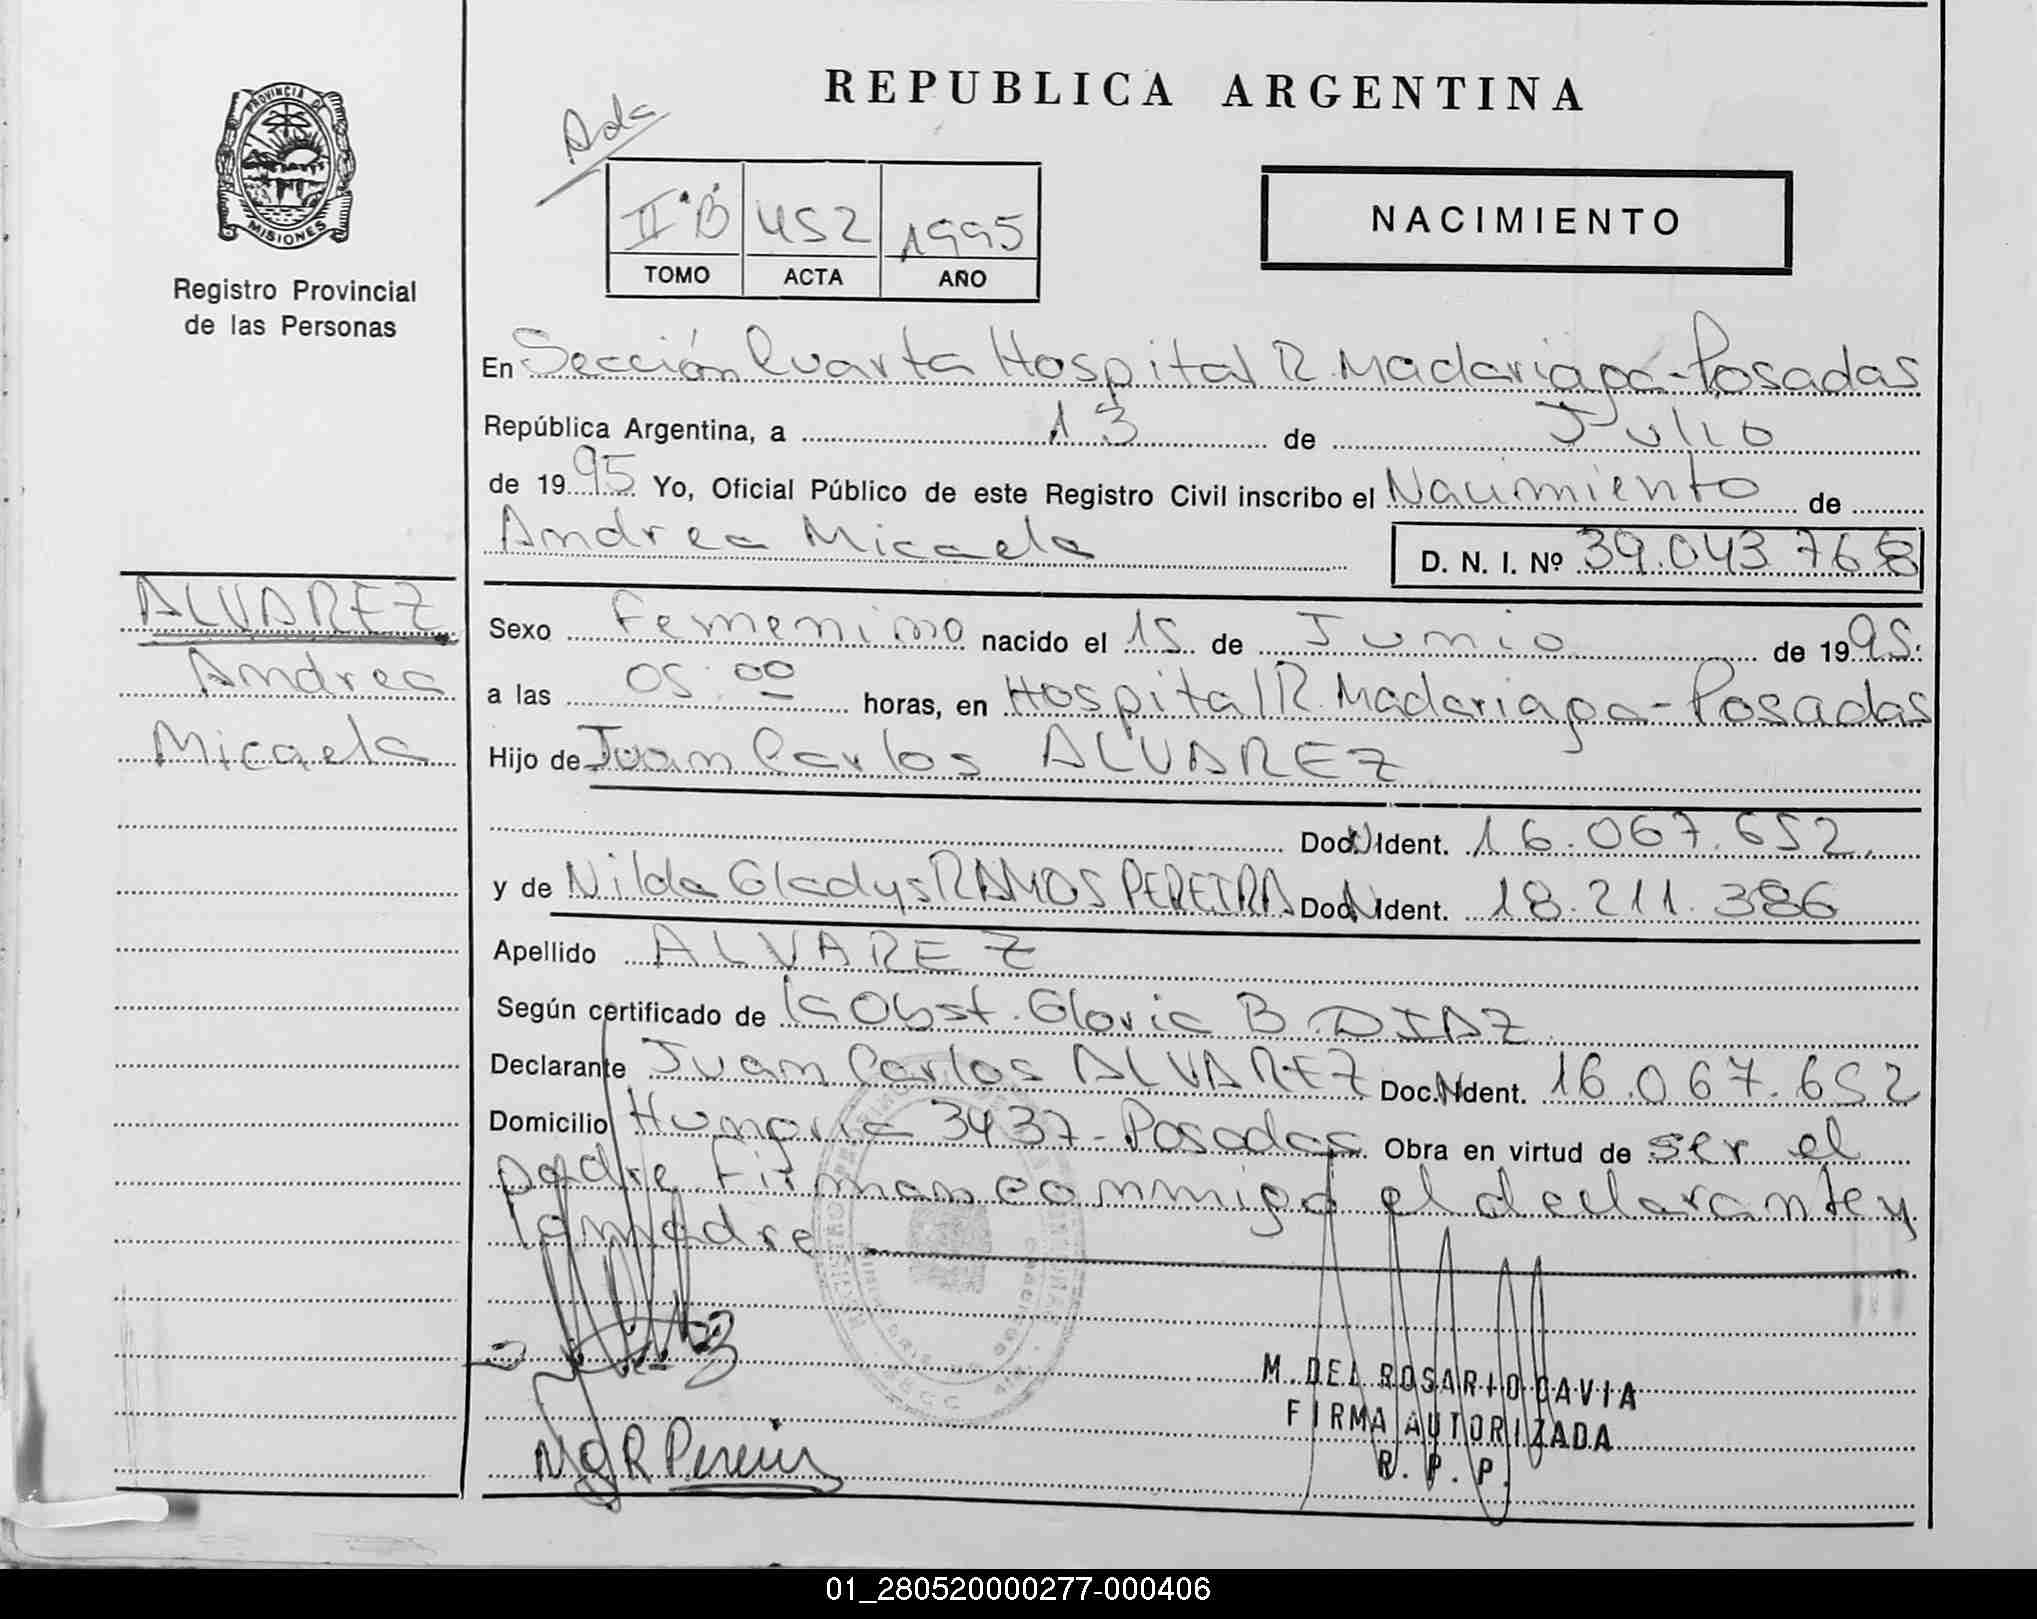 REPUBLICA ARGENTINA
PROVINCIA DE
MISIONES
Registro Provincial
de las Personas
II "B" 452 1995
TOMO ACTA AÑO
NACIMIENTO
En Sección Cuarta Hospital R. Madariaga - Posadas
República Argentina, a 13 de Julio
de 1995 Yo, Oficial Público de este Registro Civil inscribo el Nacimiento de
Andrea Micaela
D. N. I. Nº 39.043.768
ALVAREZ
Andrea
Micaela
Sexo Femenino nacido el 15 de Junio de 1995.
a las 05:00 horas, en Hospital R. Madariaga - Posadas
Hijo de Juan Carlos ALVAREZ
Doc. Ident. 16.067.652
y de Nilda Gladys RAMOS PEREIRA Doc. Ident. 18.211.386
Apellido ALVAREZ
Según certificado de la Obst. Gloria B. DIAZ
Declarante Juan Carlos ALVAREZ Doc. Ident. 16.067.652
Domicilio Hungria 3437 - Posadas Obra en virtud de ser el
padre Firman conmigo el declarante y
la madre
NgR Pereira
M. DEL ROSARIO GAVIA
FIRMA AUTORIZADA
R. P. P.
01_280520000277-000406